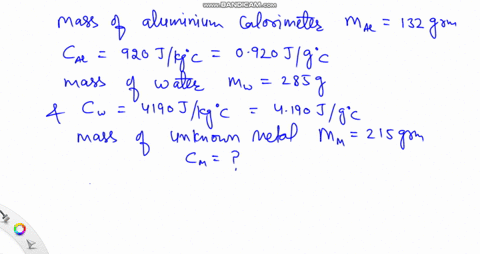 WWW.BANDICAM.COM
mass of aluminium calorimeter m_Al = 132 grm
C_Al = 920 J/kg°C = 0.920 J/g°C
mass of water m_w = 285 g
& C_w = 4190 J/kg°C = 4.190 J/g°C
mass of unknown metal m_M = 215 grm
C_M = ?